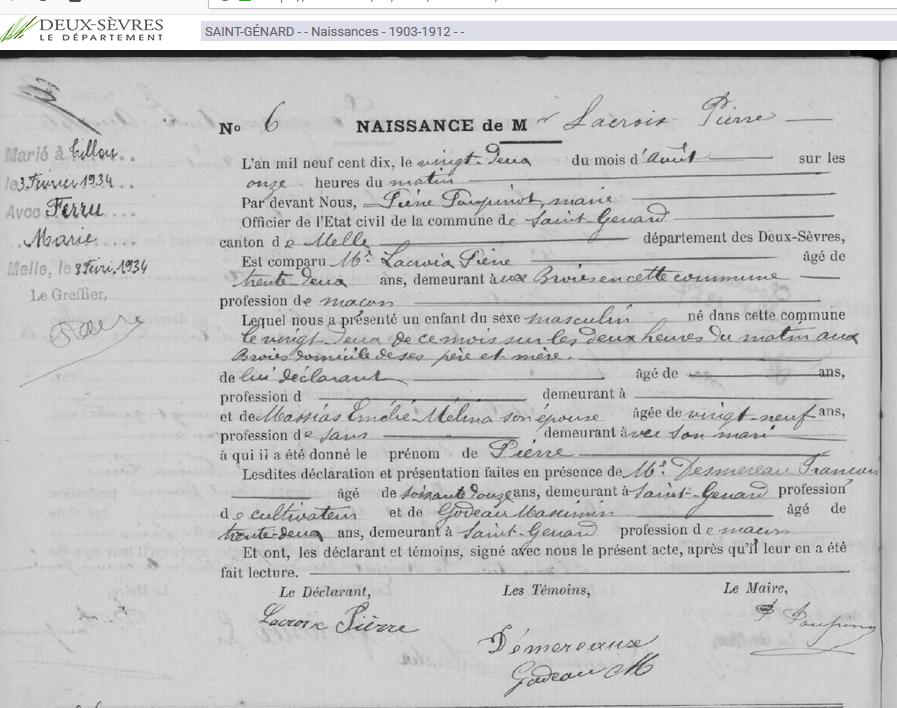 DEUX-SÈVRES
LE DÉPARTEMENT
SAINT-GÉNARD - - Naissances - 1903-1912 - -
No 6 NAISSANCE de Mr Lacroix Pierre
L'an mil neuf cent dix, le vingt-deux du mois d'Août sur les
onze heures du matin
Par devant Nous, Pierre maire
Officier de l'Etat civil de la commune de Saint-Genard
canton de Melle département des Deux-Sèvres,
Est comparu Mr Lacroix Pierre âgé de
trente-deux ans, demeurant aux Broies en cette commune
profession de maçon
Lequel nous a présenté un enfant du sèxe masculin né dans cette commune
le vingt-deux de ce mois sur les deux heures du matin aux
Broies domicile de ses père et mère.
de lui déclarant âgé de ans,
profession d demeurant à
et de Massias Emélie Mélina son épouse âgée de vingt-neuf ans,
profession de sans demeurant avec son mari
à qui il a été donné le prénom de Pierre
Lesdites déclaration et présentation faites en présence de Mrs Desmereau Francois
âgé de soixante douze ans, demeurant à Saint-Genard profession
de cultivateur et de Godeau Maximin âgé de
trente-deux ans, demeurant à Saint-Genard profession de maçon
Et ont, les déclarant et témoins, signé avec nous le présent acte, après qu'il leur en a été
fait lecture.
Le Déclarant, Les Témoins, Le Maire,
Lacroix Pierre
Démereaux
Godeau M
Marié à Tillou
le 3 Février 1934
Avec Ferru
Marie
Melle, le 8 Févr. 1934
Le Greffier,